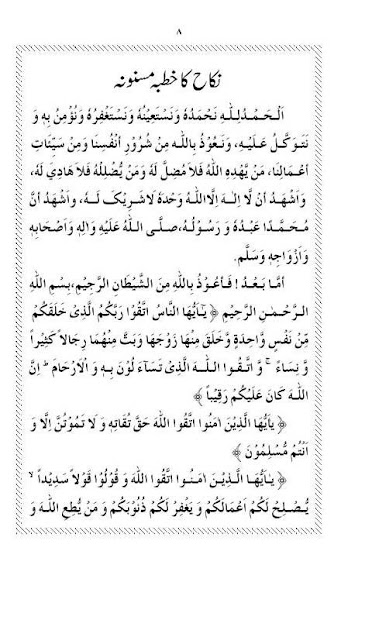 ۸
نکاح کا خطبہ مسنونہ
اَلْحَمْدُلِلّٰهِ نَحْمَدُهٗ وَنَسْتَعِيْنُهٗ وَنَسْتَغْفِرُهٗ وَنُؤْمِنُ بِهٖ وَ
نَتَوَكَّلُ عَلَيْهِ، وَنَعُوْذُ بِاللّٰهِ مِنْ شُرُوْرِ اَنْفُسِنَا وَمِنْ سَيِّئَاتِ
اَعْمَالِنَا، مَنْ يَّهْدِهِ اللّٰهُ فَلَا مُضِلَّ لَهٗ وَمَنْ يُّضْلِلْهُ فَلَا هَادِيَ لَهٗ،
وَاَشْهَدُ اَنْ لَّا اِلٰهَ اِلَّا اللّٰهُ وَحْدَهٗ لَا شَرِيْكَ لَهٗ، وَاَشْهَدُ اَنَّ
مُحَمَّدًا عَبْدُهٗ وَ رَسُوْلُهٗ،صَلَّى اللّٰهُ عَلَيْهِ وَاٰلِهٖ وَاَصْحَابِهٖ
وَاَزْوَاجِهٖ وَسَلَّم.
اَمَّا بَعْدُ ! فَاَعُوْذُ بِاللّٰهِ مِنَ الشَّيْطَانِ الرَّجِيْمِ،بِسْمِ اللّٰهِ
الرَّحْمٰنِ الرَّحِيْمِ ﴿ يٰٓاَيُّهَا النَّاسُ اتَّقُوْا رَبَّكُمُ الَّذِيْ خَلَقَكُمْ
مِّنْ نَفْسٍ وَّاحِدَةٍ وَّخَلَقَ مِنْهَا زَوْجَهَا وَبَثَّ مِنْهُمَا رِجَالًا كَثِيْراً
وَّ نِسَاءً ۚ وَ اتَّقُوا اللّٰهَ الَّذِيْ تَسَآءَ لُوْنَ بِهٖ وَ الْاَرْحَامَ ؕ اِنَّ
اللّٰهَ كَانَ عَلَيْكُمْ رَقِيْباً ﴾
﴿ يٰاَيُّهَا الَّذِيْنَ اٰمَنُوا اتَّقُوا اللّٰهَ حَقَّ تُقَاتِهٖ وَ لَا تَمُوْتُنَّ اِلَّا وَ
اَنْتُمْ مُّسْلِمُوْنَ ﴾
﴿ يٰاَيُّهَا الَّذِيْنَ اٰمَنُوا اتَّقُوا اللّٰهَ وَ قُوْلُوْا قَوْلًا سَدِيْداً ۙ
يُّصْلِحْ لَكُمْ اَعْمَالَكُمْ وَ يَغْفِرْ لَكُمْ ذُنُوْبَكُمْ وَ مَنْ يُّطِعِ اللّٰهَ وَ